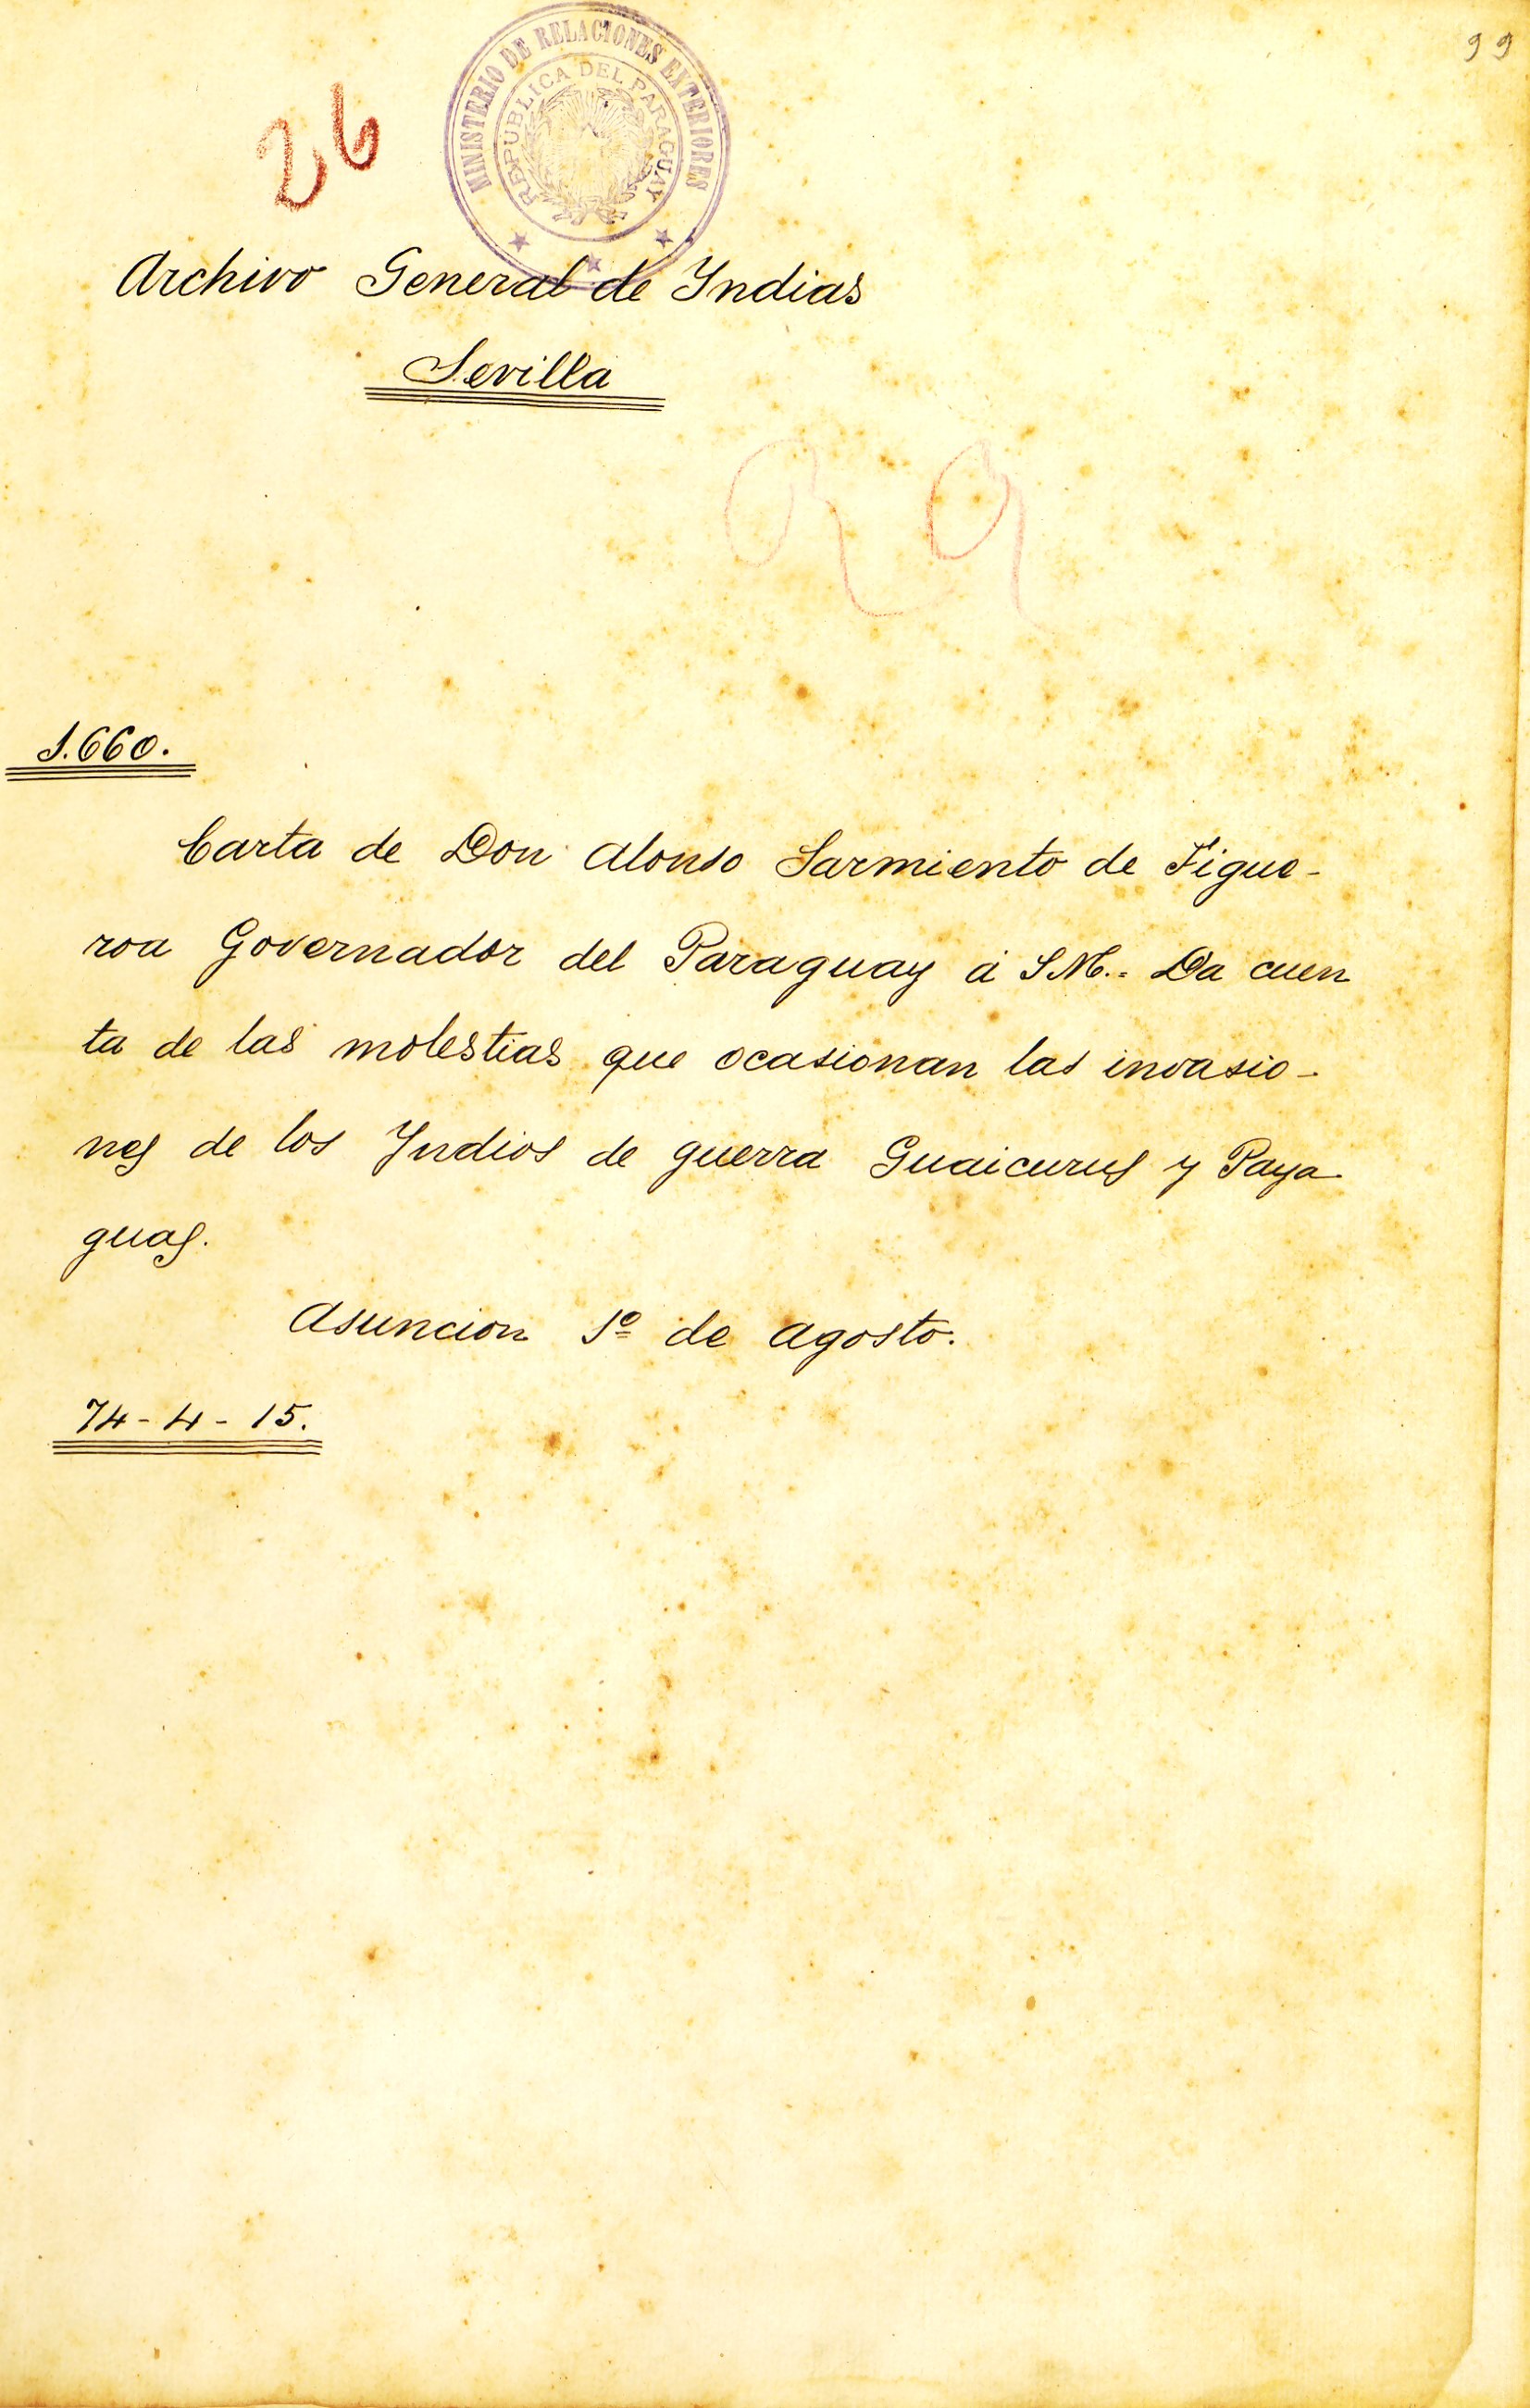 99
26
MINISTERIO DE RELACIONES EXTERIORES
REPUBLICA DEL PARAGUAY
Archivo General de Yndias
Sevilla
1.660.
Carta de Don Alonso Sarmiento de Figue-
roa Governador del Paraguay á S M.= Da cuen
ta de las molestias que ocasionan las invasio-
nes de los Yndios de guerra Guaicurus y Paya
guas.
Asuncion 1º de agosto.
74-4-15.